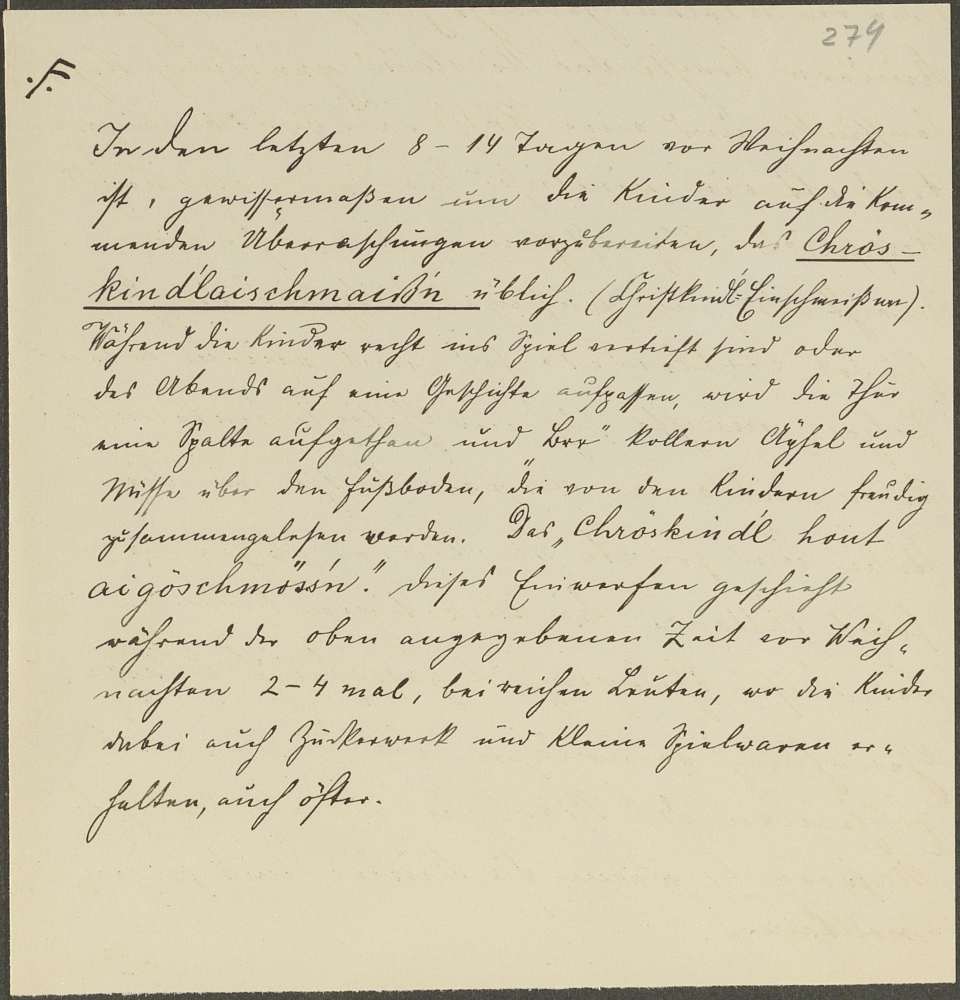 274
·/.
In den letzten 8 – 14 Tagen vor Weihnachten
ist, gewissermaßen um die Kinder auf die kom-
menden Überraschungen vorzubereiten, das Chrös-
kindlaischmaiß'n üblich. (Christkindl-Einschmeißen).
Während die Kinder recht ins Spiel vertieft sind oder
des Abends auf eine Geschichte aufpassen, wird die Thür
eine Spalte aufgethan und „Brr“ kollern Äpfel und
Nüsse über den Fußboden, die von den Kindern freudig
zusammengelesen werden. Das „Chröskind'l hont
aigöschmöss'n“. Dieses Einwerfen geschieht
während der oben angegebenen Zeit vor Weih-
nachten 2–4 mal, bei reichen Leuten, wo die Kinder
dabei auch Zuckerwerk und kleine Spielwaren er-
halten, auch öfter.